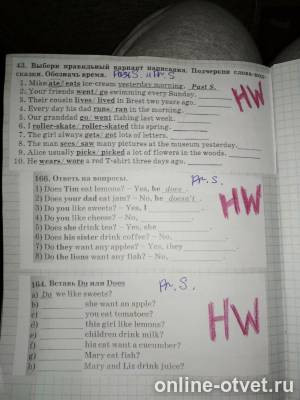 43. Выбери правильный вариант написания. Подчеркни слова-под-
сказки. Обозначь время. Past S. и Pr. S.
1. Mike ate/eats ice-cream yesterday morning. Past S.
2. Your friends went/go swimming every Sunday.
3. Their cousin lives/lived in Brest two years ago.
4. Every day his dad runs/ran in the morning.
5. Our granddad go/went fishing last week.
6. I roller-skate/roller-skated this spring.
7. The girl always gets/got lots of letters.
8. The man sees/saw many pictures at the museum yesterday.
9. Alice usually picks/picked a lot of flowers in the woods.
10. He wears/wore a red T-shirt three days ago.
HW
166. Ответь на вопросы. Pr. S.
1) Does Tim eat lemons? – Yes, he does.
2) Does your dad eat jam? – No, he doesn't.
3) Do you like sweets? – Yes, I
4) Do you like cheese? – No,
5) Does she drink tea? – Yes, she
6) Does his sister drink coffee? – No,
7) Do they want any apples? – Yes, they
8) Do the lions want any fish? – No,
HW
164. Вставь Do или Does Pr. S.
a) Do we like sweets?
b) she want an apple?
c) you eat tomatoes?
d) this girl like lemons?
e) children drink milk?
f) his cat want a cucumber?
g) Mary eat fish?
h) Mary and Liz drink juice?
HW
online-otvet.ru